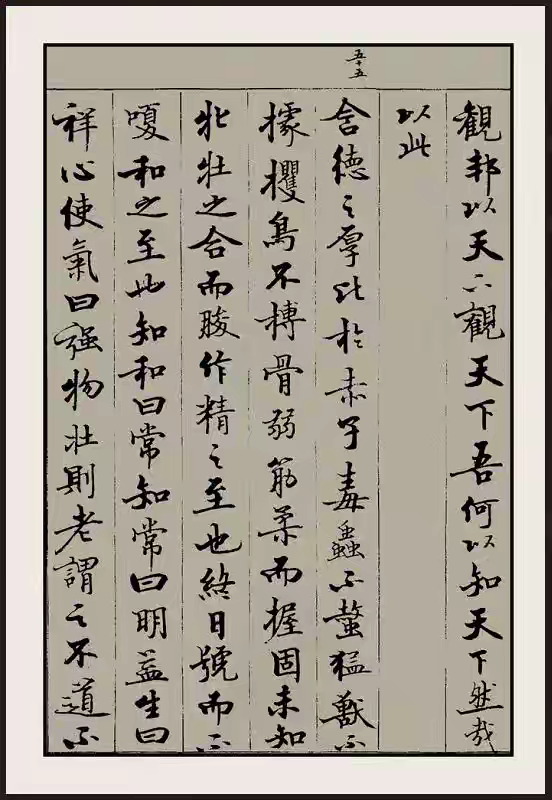 觀邦以天下觀天下吾何以知天下然哉
以此
五十五
含德之厚比於赤子毒蟲不螫猛獸不
據攫鳥不搏骨弱筋柔而握固未知
牝牡之合而朘作精之至也終日號而不
嗄和之至也知和曰常知常曰明益生曰
祥心使氣曰强物壯則老謂之不道不